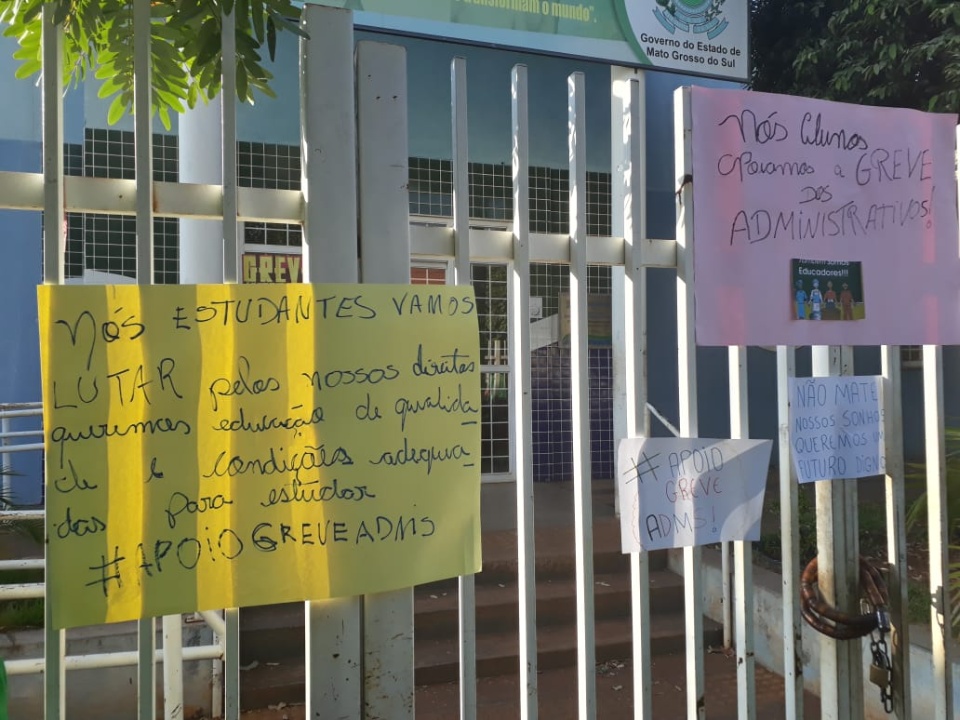 transformam o mundo".
Governo do Estado de
Mato Grosso do Sul
Nós Alunos
apoiamos a GREVE
DOS
ADMINISTRATIVOS!
Educadores!!!
GREV
Nós ESTUDANTES VAMOS
LUTAR pelos nossos direitos
queremos educação de qualida
de e condições adequa
das para estudar
#APOIOGREVEADMS
# APOIO
GREVE
ADMS!
NÃO MATE
NOSSOS SONHOS
QUEREMOS UM
FUTURO DIGNO